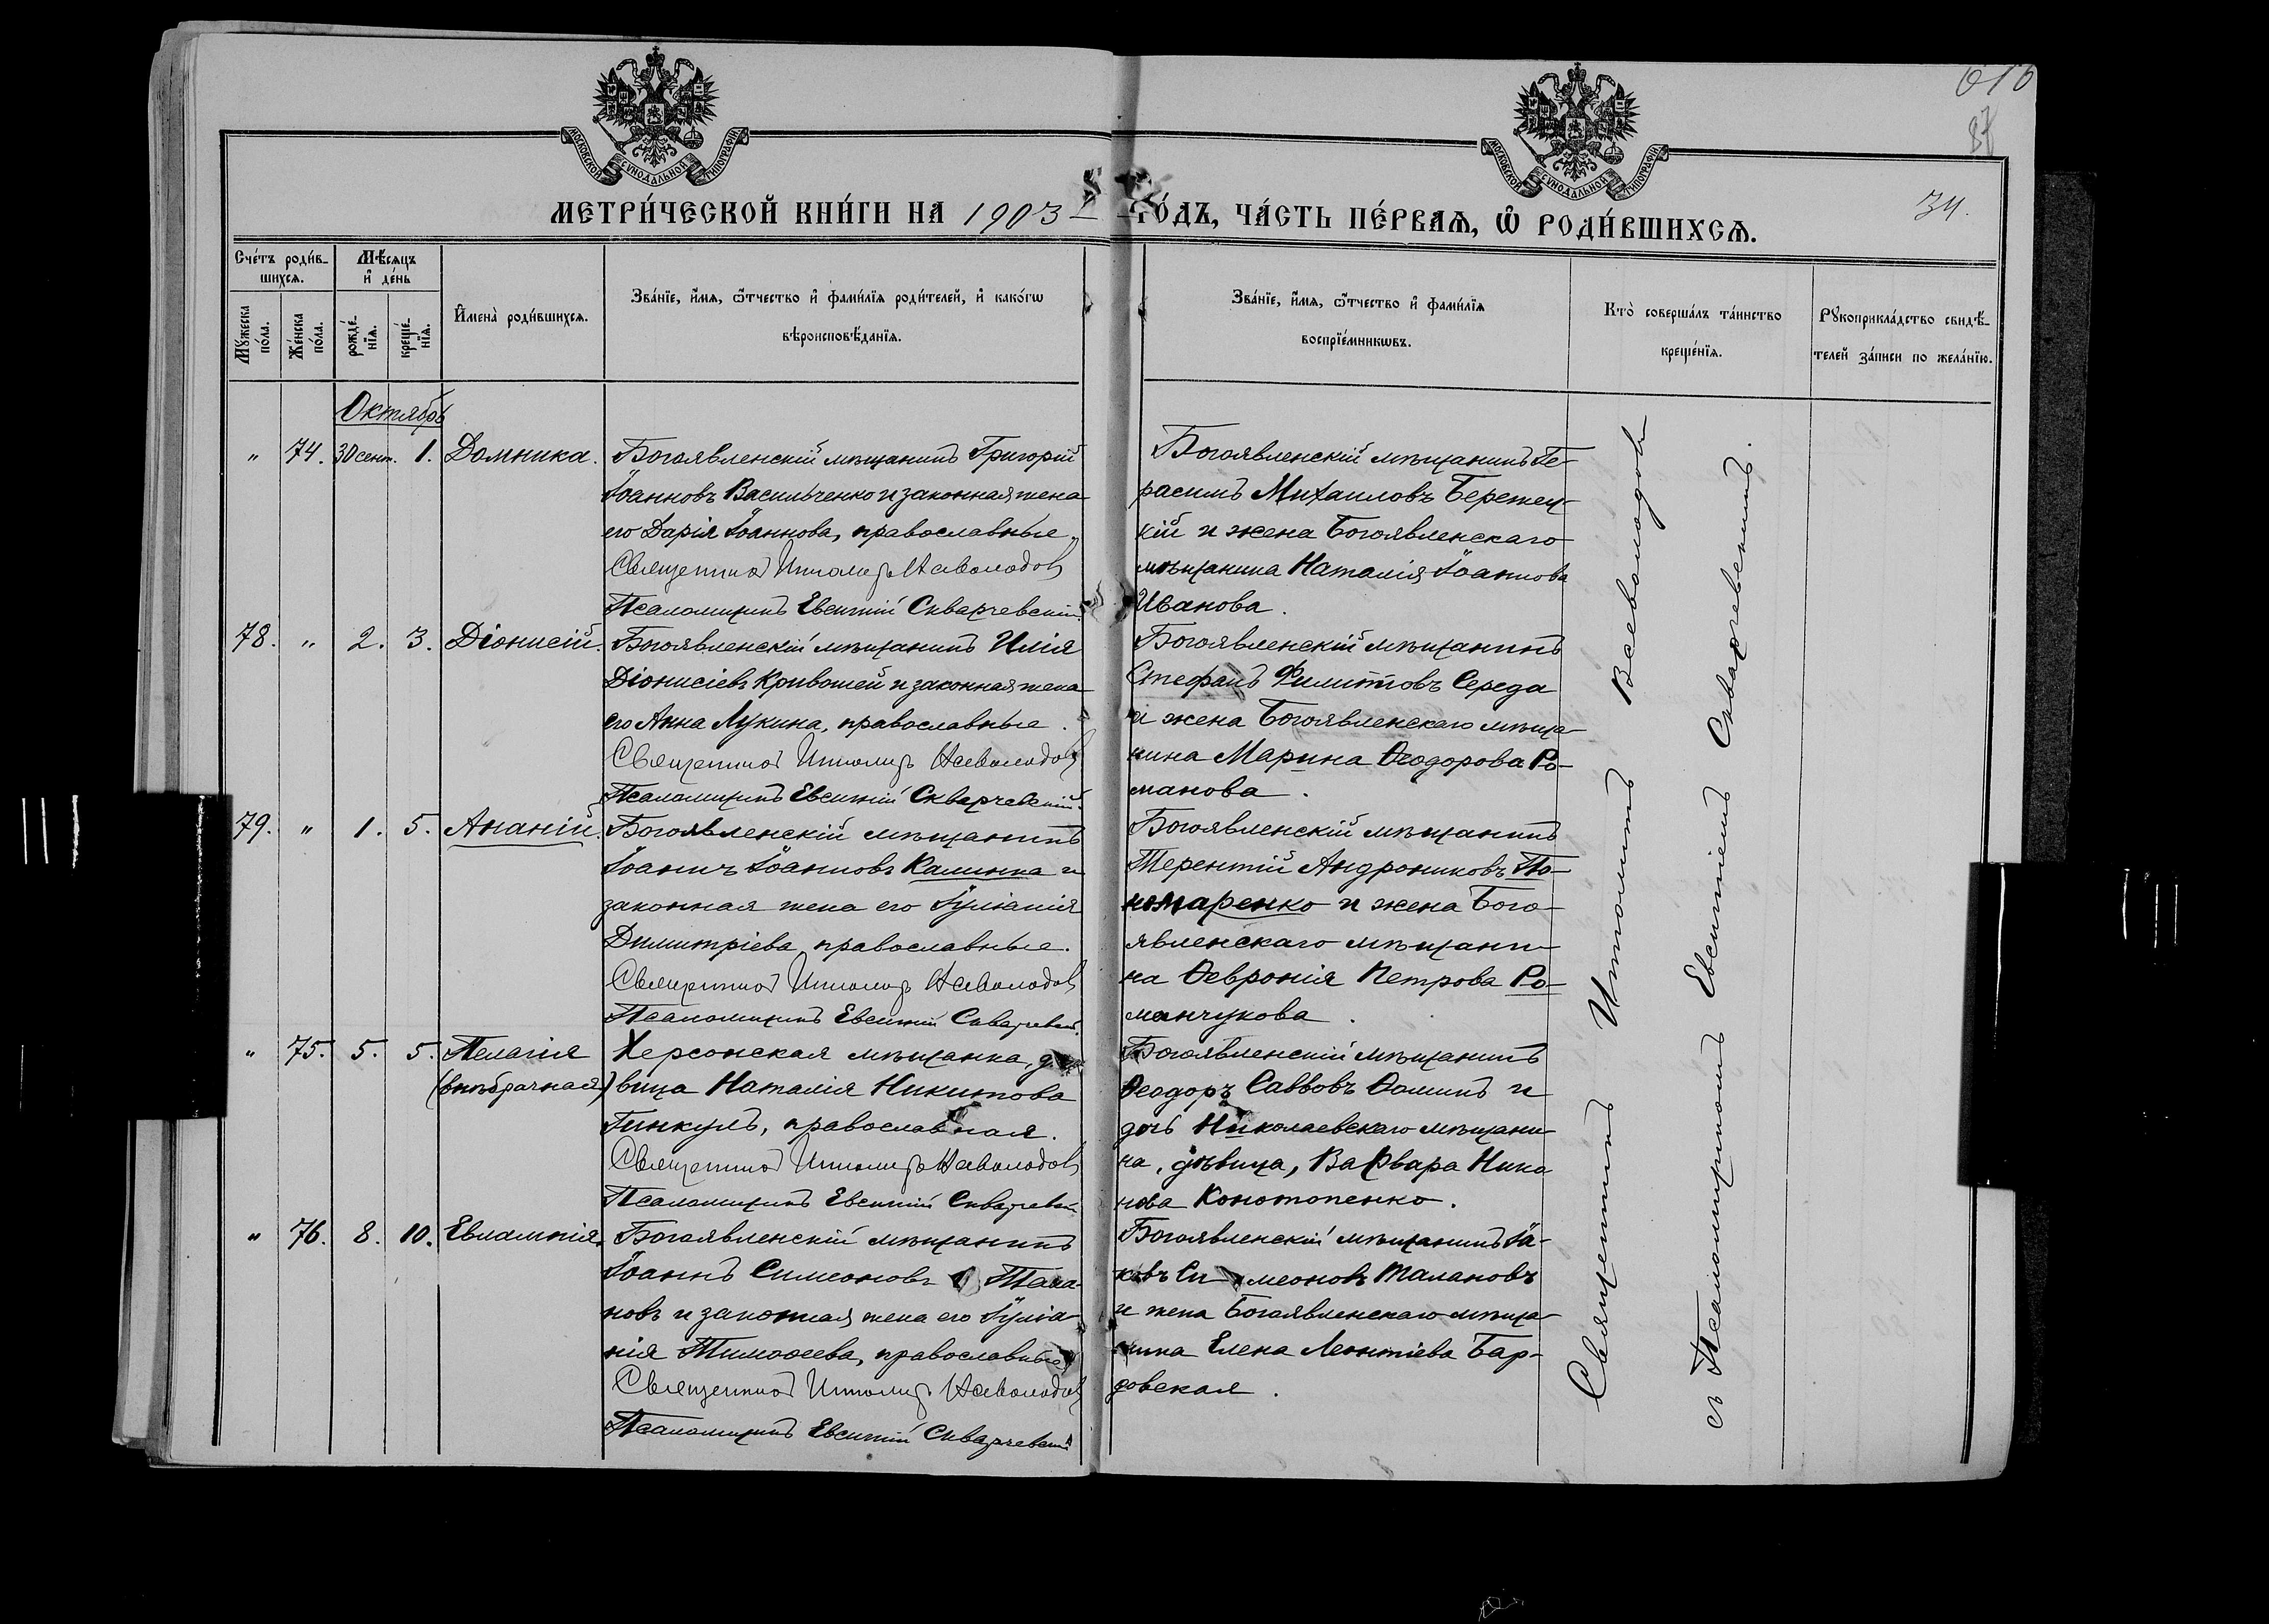 МОСКОВСКОЙ СѴНОДАЛЬНОЙ ТИПОГРАФІИ
МОСКОВСКОЙ СѴНОДАЛЬНОЙ ТИПОГРАФІИ
616
87
34.
МЕТРИ́ЧЕСКОЙ КНИ́ГИ НА 1903 ГО́ДЪ, ЧА́СТЬ ПЕ́РВАѦ, Ѡ҆ РОДИ́ВШИХСѦ.
Сче́тъ роди́в-
шихсѧ.
Мꙋ́жеска по́ла.
Же́нска по́ла.
Мѣ́сѧцъ
и҆ де́нь
рожде́-
нїѧ.
креще́-
нїѧ.
И҆мена̀ роди́вшихсѧ.
Зва́нїе, и҆́мѧ, ѻ҆́тчество и҆ фами́лїѧ роди́телей, и҆ како́гѡ
вѣроисповѣ́данїѧ.
Зва́нїе, и҆́мѧ, ѻ҆́тчество и҆ фами́лїѧ
воспрїе́мникѡвъ.
Кто̀ соверша́лъ та́инство
креще́нїѧ.
Рꙋкоприкла́дство свидѣ́-
телей за́писи по жела́нїю.
Октябрь
" 74. 30 сент. 1. Домника.
Богоявленскій мѣщанинъ Григорій
Іоанновъ Васильченко и законная жена
его Дарія Іоаннова, православные.
Священникъ Ипполитъ Всеволодовъ
Псаломщикъ Евсигній Скварчевскій.
Богоявленскій мѣщанинъ Ге-
расимъ Михаиловъ Бережец-
кій и жена Богоявленскаго
мѣщанина Наталія Іоаннова
Иванова.
78. " 2. 3. Діонисій.
Богоявленскій мѣщанинъ Илія
Діонисіевъ Кривошей и законная жена
его Анна Лукина, православные.
Священникъ Ипполитъ Всеволодовъ
Псаломщикъ Евсигній Скварчевскій.
Богоявленскій мѣщанинъ
Стефанъ Филипповъ Середа
и жена Богоявленскаго мѣща-
нина Марина Ѳеодорова Ро-
манова.
79. " 1. 5. Ананій.
Богоявленскій мѣщанинъ
Іоаннъ Іоанновъ Калинка и
законная жена его Іуліанія
Димитріева, православные.
Священникъ Ипполитъ Всеволодовъ
Псаломщикъ Евсигній Скварчевскій.
Богоявленскій мѣщанинъ
Терентій Андрониковъ По-
номаренко и жена Бого-
явленскаго мѣщани-
на Ѳевронія Петрова Ро-
манчукова.
" 75. 5. 5. Пелагія
(внѣбрачная)
Херсонская мѣщанка, дѣ-
вица Наталія Никитова
Гинкулъ, православная.
Священникъ Ипполитъ Всеволодовъ
Псаломщикъ Евсигній Скварчевскій
Богоявленскій мѣщанинъ
Ѳеодоръ Саввовъ Ѳоминъ и
дочь Николаевскаго мѣщани-
на, дѣвица, Варвара Ника
нова Конотопенко.
" 76. 8. 10. Евлампія.
Богоявленскій мѣщанинъ
Іоаннъ Симеоновъ Тала-
новъ и законная жена его Іуліа-
нія Тимоѳеева, православные
Священникъ Ипполитъ Всеволодовъ
Псаломщикъ Евсигній Скварчевскій
Богоявленскій мѣщанинъ Іа-
ковъ Симеоновъ Талановъ
и жена Богоявленскаго мѣща-
нина Елена Леонтіева Бар-
довская.
Священникъ Ипполитъ Всеволодовъ
съ Псаломщикомъ Евсигніемъ Скварчевскимъ.